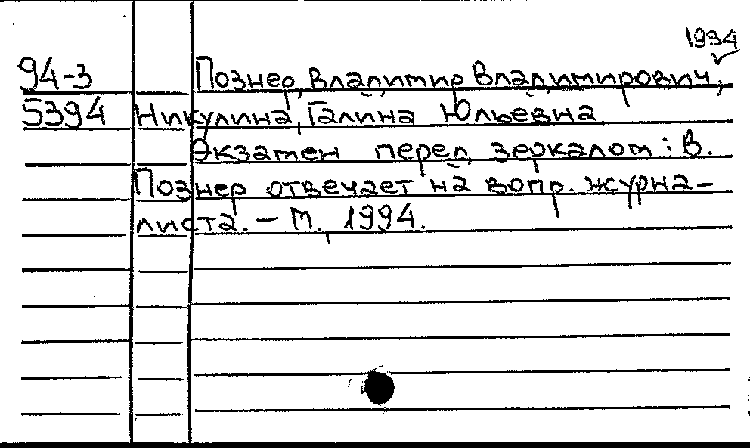 1934
94-3 Познер, Владимир Владимирович,
5394 Никулина, Галина Юльевна
Экзамен перед зеркалом: В.
Познер отвечает на вопр. журна-
листа. – М., 1994.